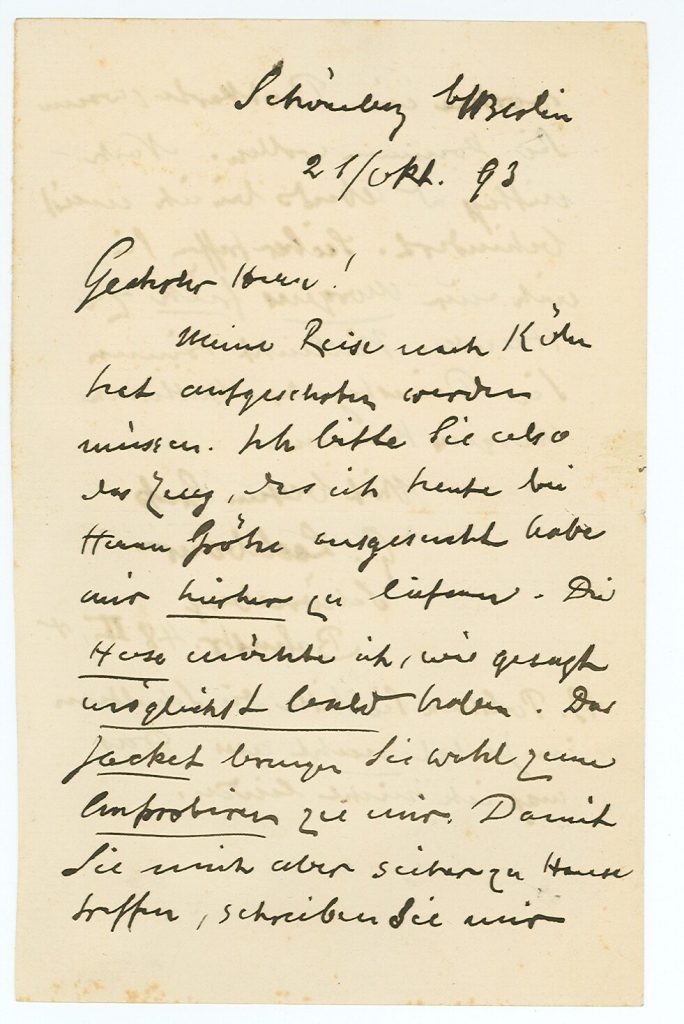 Schöneberg b/Berlin
21/Okt. 93
Geehrter Herr!
Meine Reise nach Köln
hat aufgeschoben werden
müssen. Ich bitte Sie also
das Zeug, das ich heute bei
Herrn Gröhe ausgesucht habe
mir hierher zu liefern. Die
Hose möchte ich, wie gesagt
möglichst bald haben. Das
Jacket bringen Sie wohl zum
Anprobiren zu mir. Damit
Sie mich aber sicher zu Hause
treffen, schreiben Sie mir